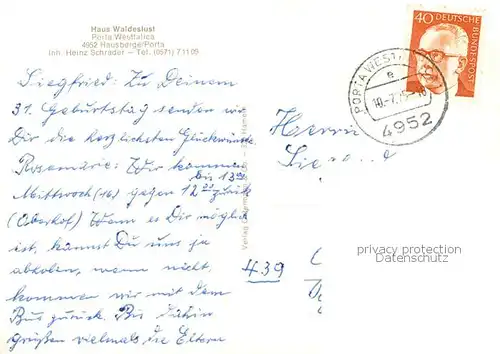 Haus Waldeslust
Porta Westfalica
4952 Hausberge/Porta
Inh. Heinz Schrader – Tel. (0571) 71105
Siegfried: Zu Deinem
31. Geburtstag senden wir
Dir die herzlichsten Glückwünsche
Rosemarie: Wir kommen
bis 13⁰⁰
Mittwoch (16) gegen 12³⁰ zurück
(Oberhof) Wenn es Dir möglich
ist, kannst Du uns ja
abholen, wenn nicht,
kommen wir mit dem
Bus zurück. Bis dahin
grüßen vielmals die Eltern
Verlag
40 DEUTSCHE
BUNDESPOST
PORTA WEST
e
10.-7.75-18
4952
Herrn
Sie
439
privacy protection
Datenschutz